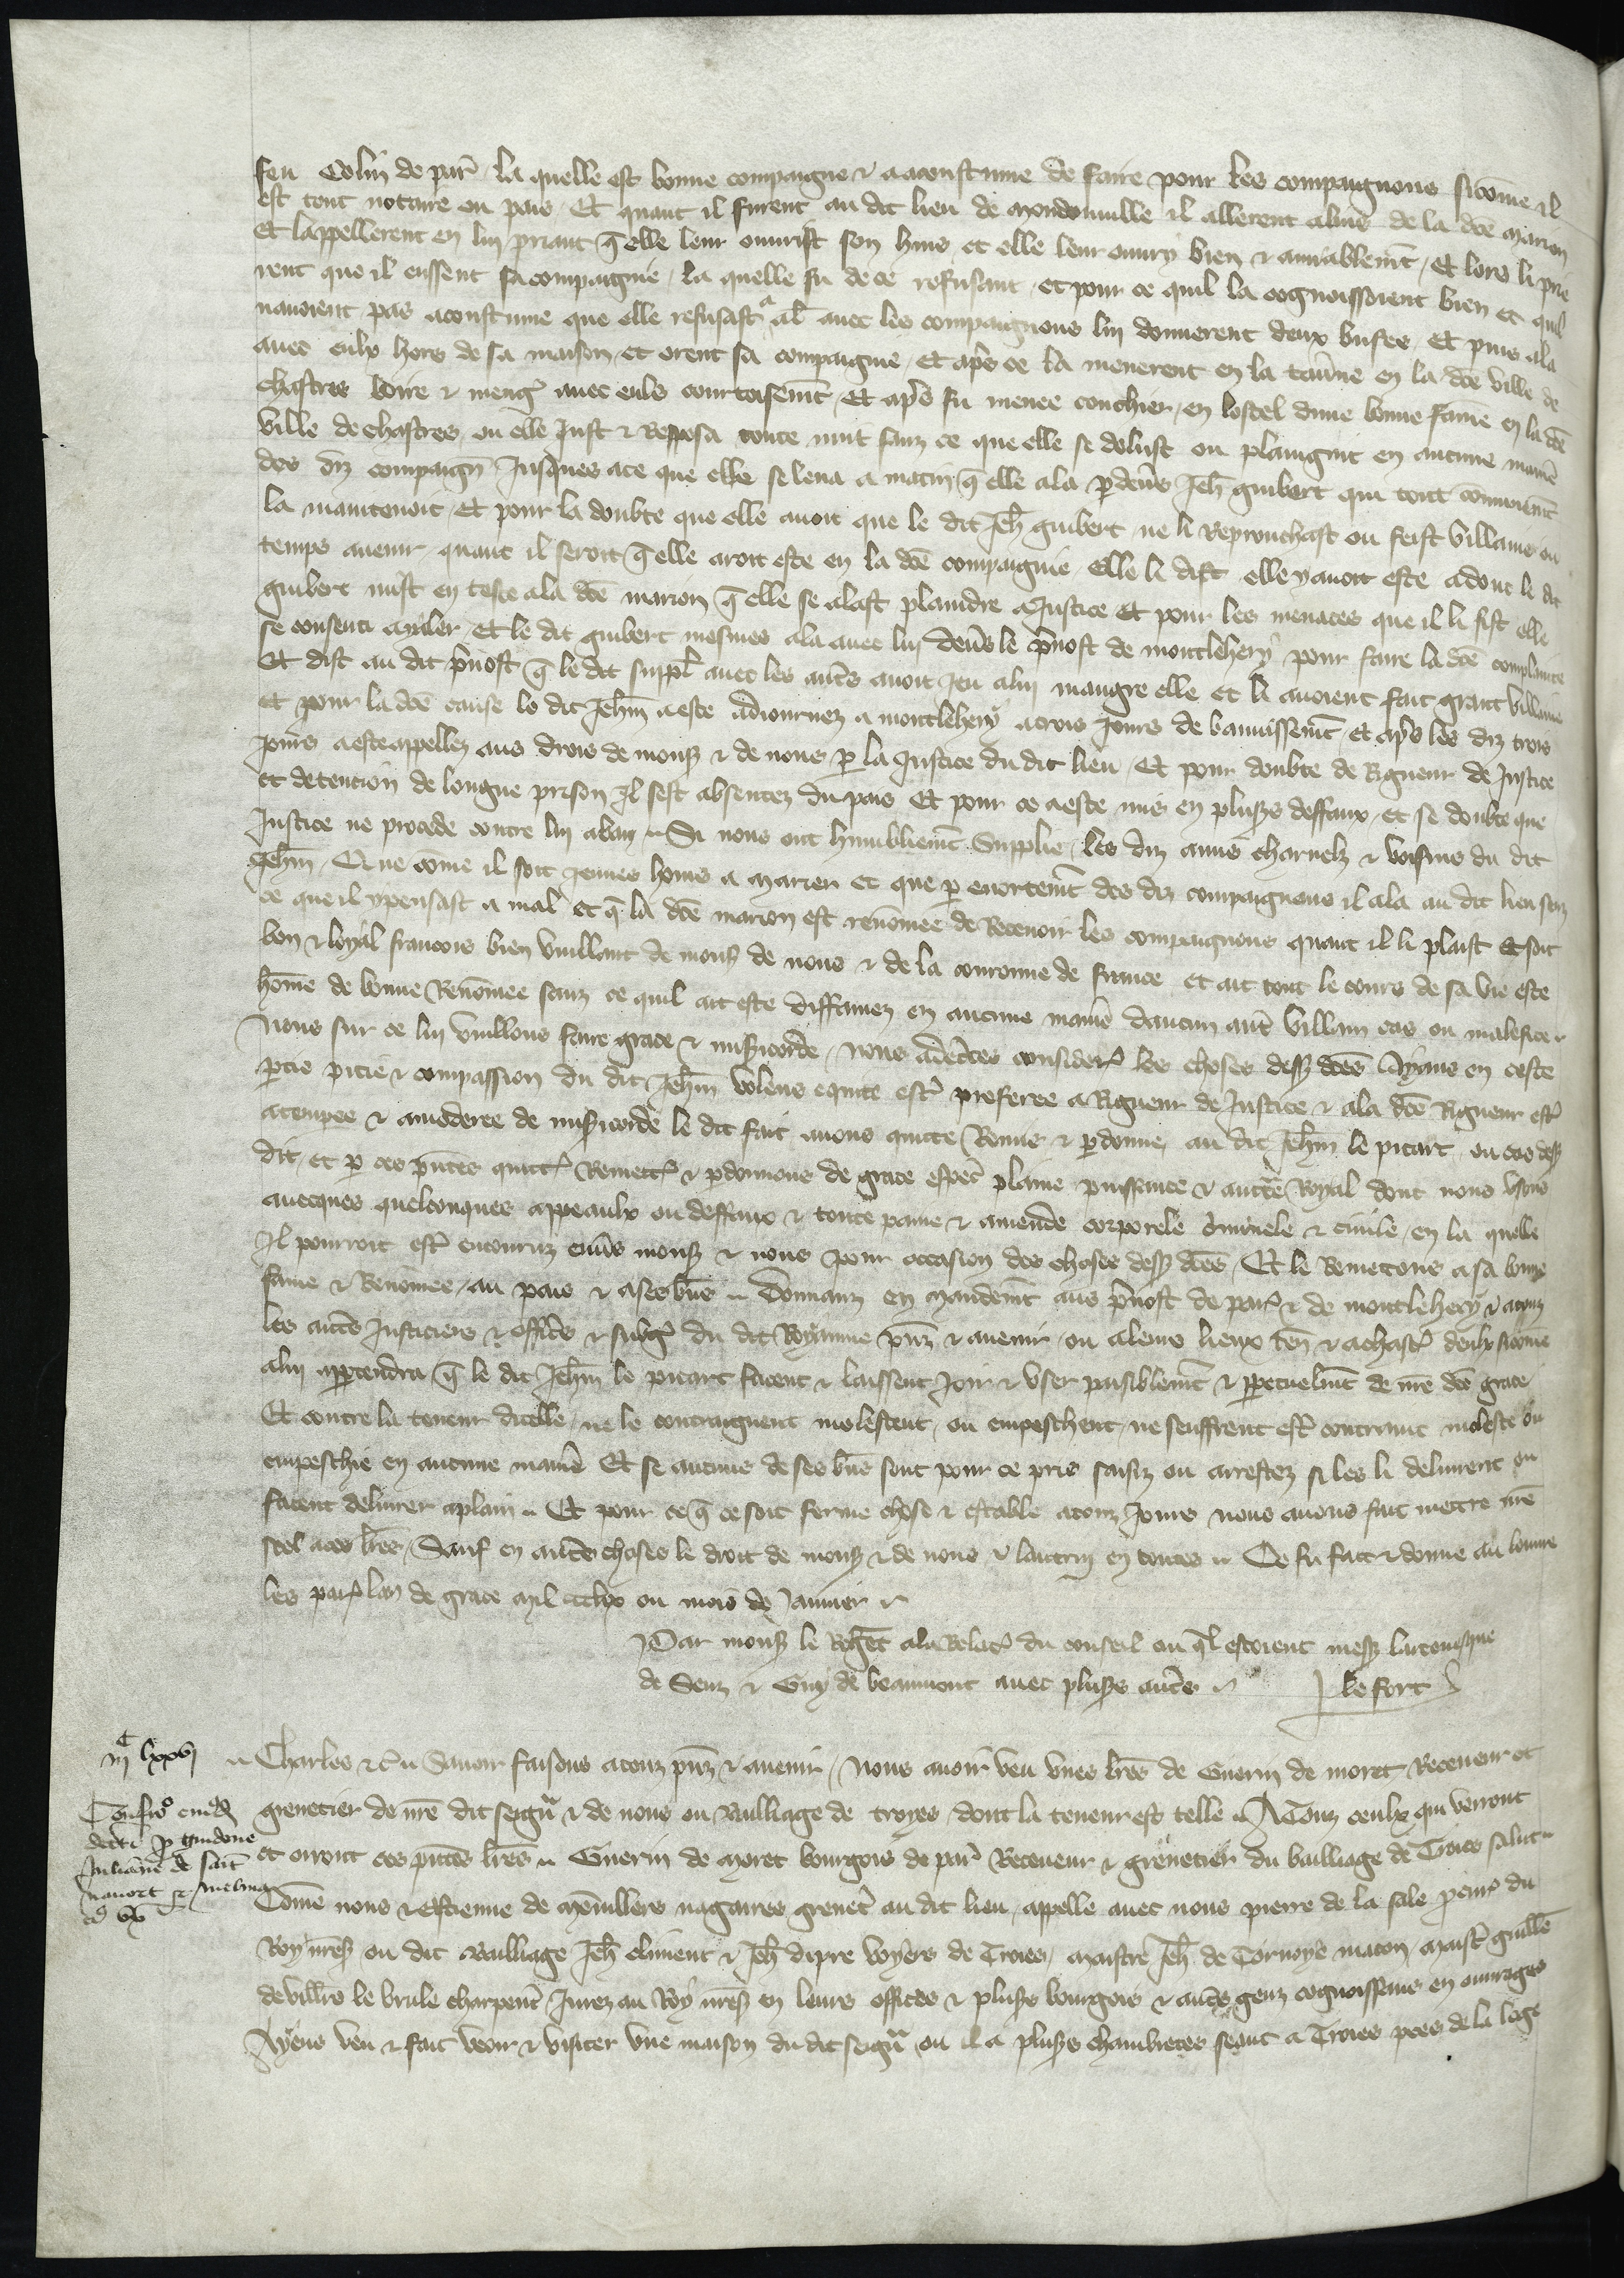 feu Colin de par̃ la quelle est bonne compaigne & a acoustume de faire pour les compaignons sicōme il
est tout notoire ou pais Et quant il furent au dit lieu de mondonville il allerent a luis de la dc̃e marion
et lappellerent en lui priant q̃ elle leur ouvrist son huis et elle leur ouvry bien & amiablemt̃ / Et lors li prie
rent que il eussent sa compaignie / la quelle fu de ce refusant et pour ce quil la cognoissoient bien et quil
navoient pas acoustume que elle refusast al̃ avec les compaignons lui donnerent deux bufes / Et puis ala
avec eulx hors de sa maison et orent sa compaignie / Et ap̃s ce la menerent en la tav̾ne en la dc̃e ville de
chastres boire & meng̾ avec euls courtoisemt̃ / Et ap̃s fu menee couchier en lostel dune bonne fame en la dc̃e
ville de chastres ou elle Just & Reposa toute nuit sanz ce que elle se dolust ou plaingnit en aucune manie̾
des diz compaign̾ Jusques ace que elle se leva a matin q̃ elle ala p̱ dev̾s Jeh̃ guibert qui tout cōmunemt̃
la maintenoit / Et pour la doubte que elle avoit que le dit Jeh̃ guibert ne li Reprouchast ou feist villanie ou
temps avenir quant il seroit q̃ elle aroit este en la dc̃e compaignie Elle li dist elle y avoit este adont le dit
guibert mist en teste ala dc̃e marion q̃ elle se alast plaindre a Justice Et pour les menaces que il li fist elle
se consenti a y aler / Et le dit guibert mesmes ala avec lui dev̾s le p̾vost de montlehery pour faire la dc̃e complainte
Et dist au dit p̾vost q̃ le dit suppl̾ avec les aut̃s avoit jeu a lui maugre elle et li avoient fait grant villanie
Et pour la dc̃e cause le dit Jeh̃n a este adiournez a montlehery a trois Jours de bannissemt̃ / et ap̃s les diz trois
Jours a este appellez aus drois de mons̾ & de nous p̱ la Justice du dit lieu / Et pour doubte de Rigueur de Justice
et detencion de longue prison Il sest absentez du pais Et pour ce a este mis en plus̾s deffaux / et se doubte que
Justice ne procede contre lui a ban / Si nous ont humblemt̃ Supplie / les diz amis charnelz & voisins du dit
Jeh̃n / Que cōme il soit jeunes homs a Marier et que p̱ enortemt̃ des diz compaignons il ala au dit lieu senz
ce que il y pensast a mal et q̃ la dc̃e marion est renōmee de Recevoir les compaignons quant il li plaist et soit
bon & loyal francois bien vuillant de mons̾ de nous & de la couronne de france et ait tout le cours de sa vie este
hōme de bonne Renōmee sanz ce quil ait este diffamez en aucune manie̾ daucun aut̃ villain cas ou malefice
Nous sur ce lui vuillons faire grace & mis̾icorde / Nous adc̃ertes consider̾ les choses dess̾ dc̃es Ayans en ceste
p̱tie pitie & compassion du dit Jeh̃n volens equite est̾ preferee a Rigueur de Justice & a la dc̃e Rigueur est̾
atempree & amoderee de mis̾icorde le dit fait avons quitte Remis & p̱donne, au dit Jeh̃n le picart ou cas dess̾
dit / et p̱ ces p̃ntes quitt̾ Remett̾ & p̱donnons de grace espec̾ plaine puissance & auct̃e Royal dont nous usons
avecques quelconques appeaulx ou deffaux & toute paine & amende corporele c̾minele & civile / en la quelle
Il pourroit est̾ encouruz env̾s mons̾ & nous pour occasion des choses dess̾ dc̃es / Et le Remetons a sa bonne
fame & Renōmee / au pais & a ses biens / Donnanz en mandemt̃ aus p̾vost de par̾ & de montlehery & a touz
les aut̃s Justiciers & offic̾s & subg̾ du dit Royaume p̃nz & avenir ou a leurs lieux ten̾ & a chast̾ deulx sicōme
a lui app̱tendra q̃ le dit Jeh̃n le picart facent & laissent Joir & user paisiblemt̃ & p̱petuelmt̃ de nr̃e dc̃e grace
Et contre la teneur dicelle / ne le contraignent molestent / ou empeschent / ne seuffrent est̾ contraint moleste ou
empeschie en aucune manie̾ Et se aucuns de ses bn̄s sont pour ce pris saisiz ou arrestez si les li delivrent ou
facent delivrer a plain / Et pour ce q̃ ce soit ferme chose & estable a touz Jours nous avons fait mettre nr̃e
scel a ces lr̃es / Sauf en aut̃s choses le droit de mons̾ & de nous & lautrui en toutes / Ce fu fait & donne au louvre
les par̾ lan de grace mil ccclix ou mois de Janvier
Par mons̾ le Regent a la Relac̾ du conseil ou q̃l estoient mess̾ larcevesque
de Senz & Guy de beaumont avec plus̾s aut̃s / J le fort
iijc lxxvj
Charles &c̃ Savoir faisons a touz p̃nz & avenir / Nous avoir veu unes lr̃es de Guerin de moret Receveur et
grenetier de nr̃e dit seign̾ & de nous ou Bailliage de troyes dont la teneur est telle / A Touz ceulx qui verront
et orront ces p̃ntes lr̃es / Guerin de Moret bourgois de par̾ Receveur & grenetier du bailliage de Troies salut
Cōme nous & Estienne de nagaires grenet̾ au dit lieu / appelle avec nous pierre de la sale pcur̾ du
Roy nr̃es̾ ou dit Bailliage Jeh̃ climent & Jeh̃ dipre voyers de Troies / maistre Jeh̃ de Torvoye macon maist̾ guillē
de vill̾rs le brule charpent̾ Jurez au Roy nr̃es̾ en leurs offices & plus̾s bourgois & aut̃s genz cognoissans en ouvrages
Ayens veu & fait veoir & visiter une maison du dit seign̾ ou il a plus̾s chambretes seant a Troies pres de la loge